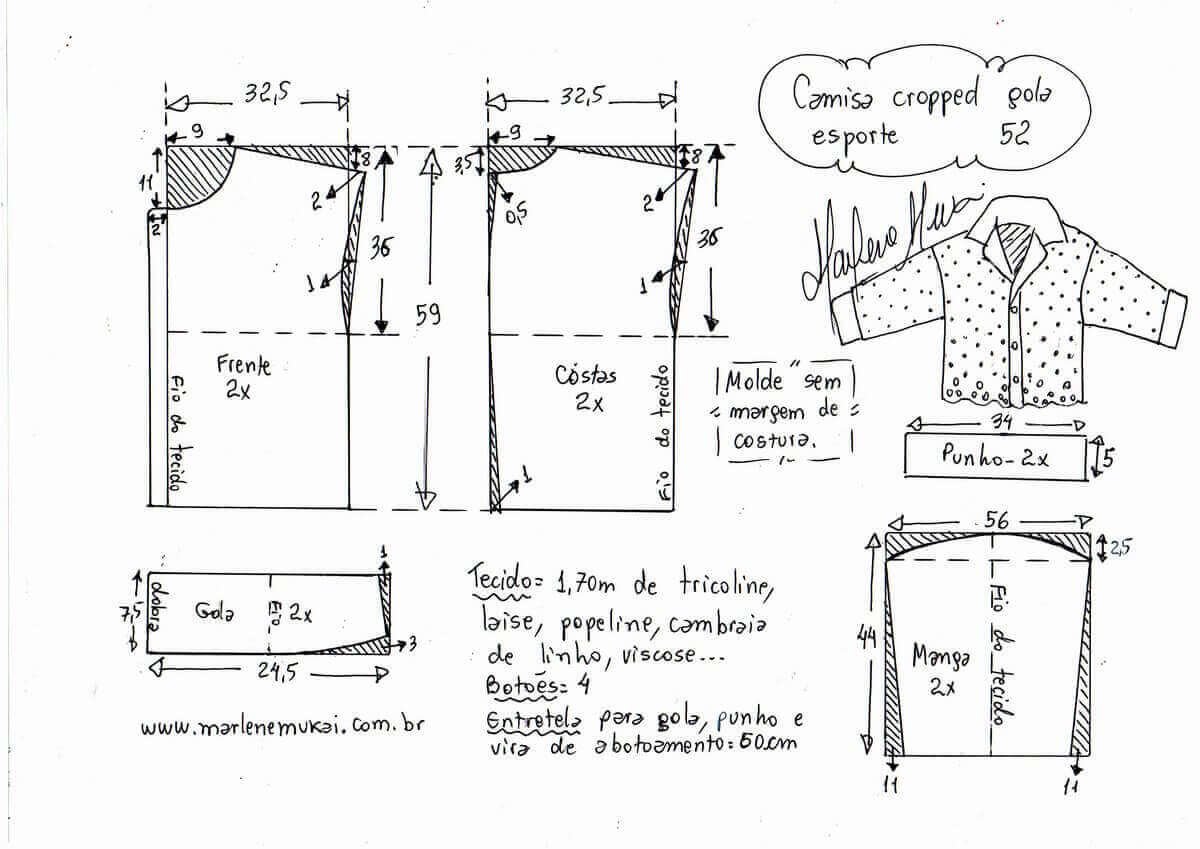 Camisa cropped gola
esporte 52
Marlene Mukai
32,5
9
11
2
8
2
36
1
Frente
2x
Fio do tecido
59
32,5
9
3,5
0,5
8
2
36
1
Cóstas
2x
Fio do tecido
1
Molde sem
margem de
costura.
34
Punho - 2x
5
56
2,5
44
Manga
2x
Fio do tecido
11
11
7,5
dobra
Gola
Fio
2x
1
3
24,5
www.marlenemukai.com.br
Tecido= 1,70m de tricoline,
laise, popeline, cambraia
de linho, viscose...
Botoēs= 4
Entretela para gola, punho e
vira de abotoamento: 50cm